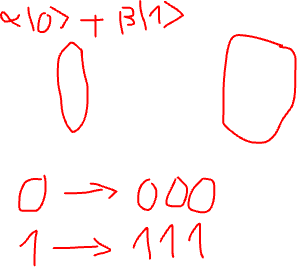 α|0> + β|1>
0 → 000
1 → 111